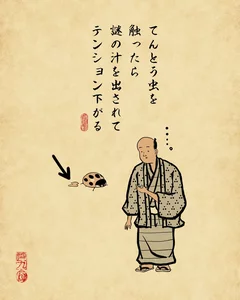 てんとう虫を
触ったら
謎の汁を出されて
テンション下がる